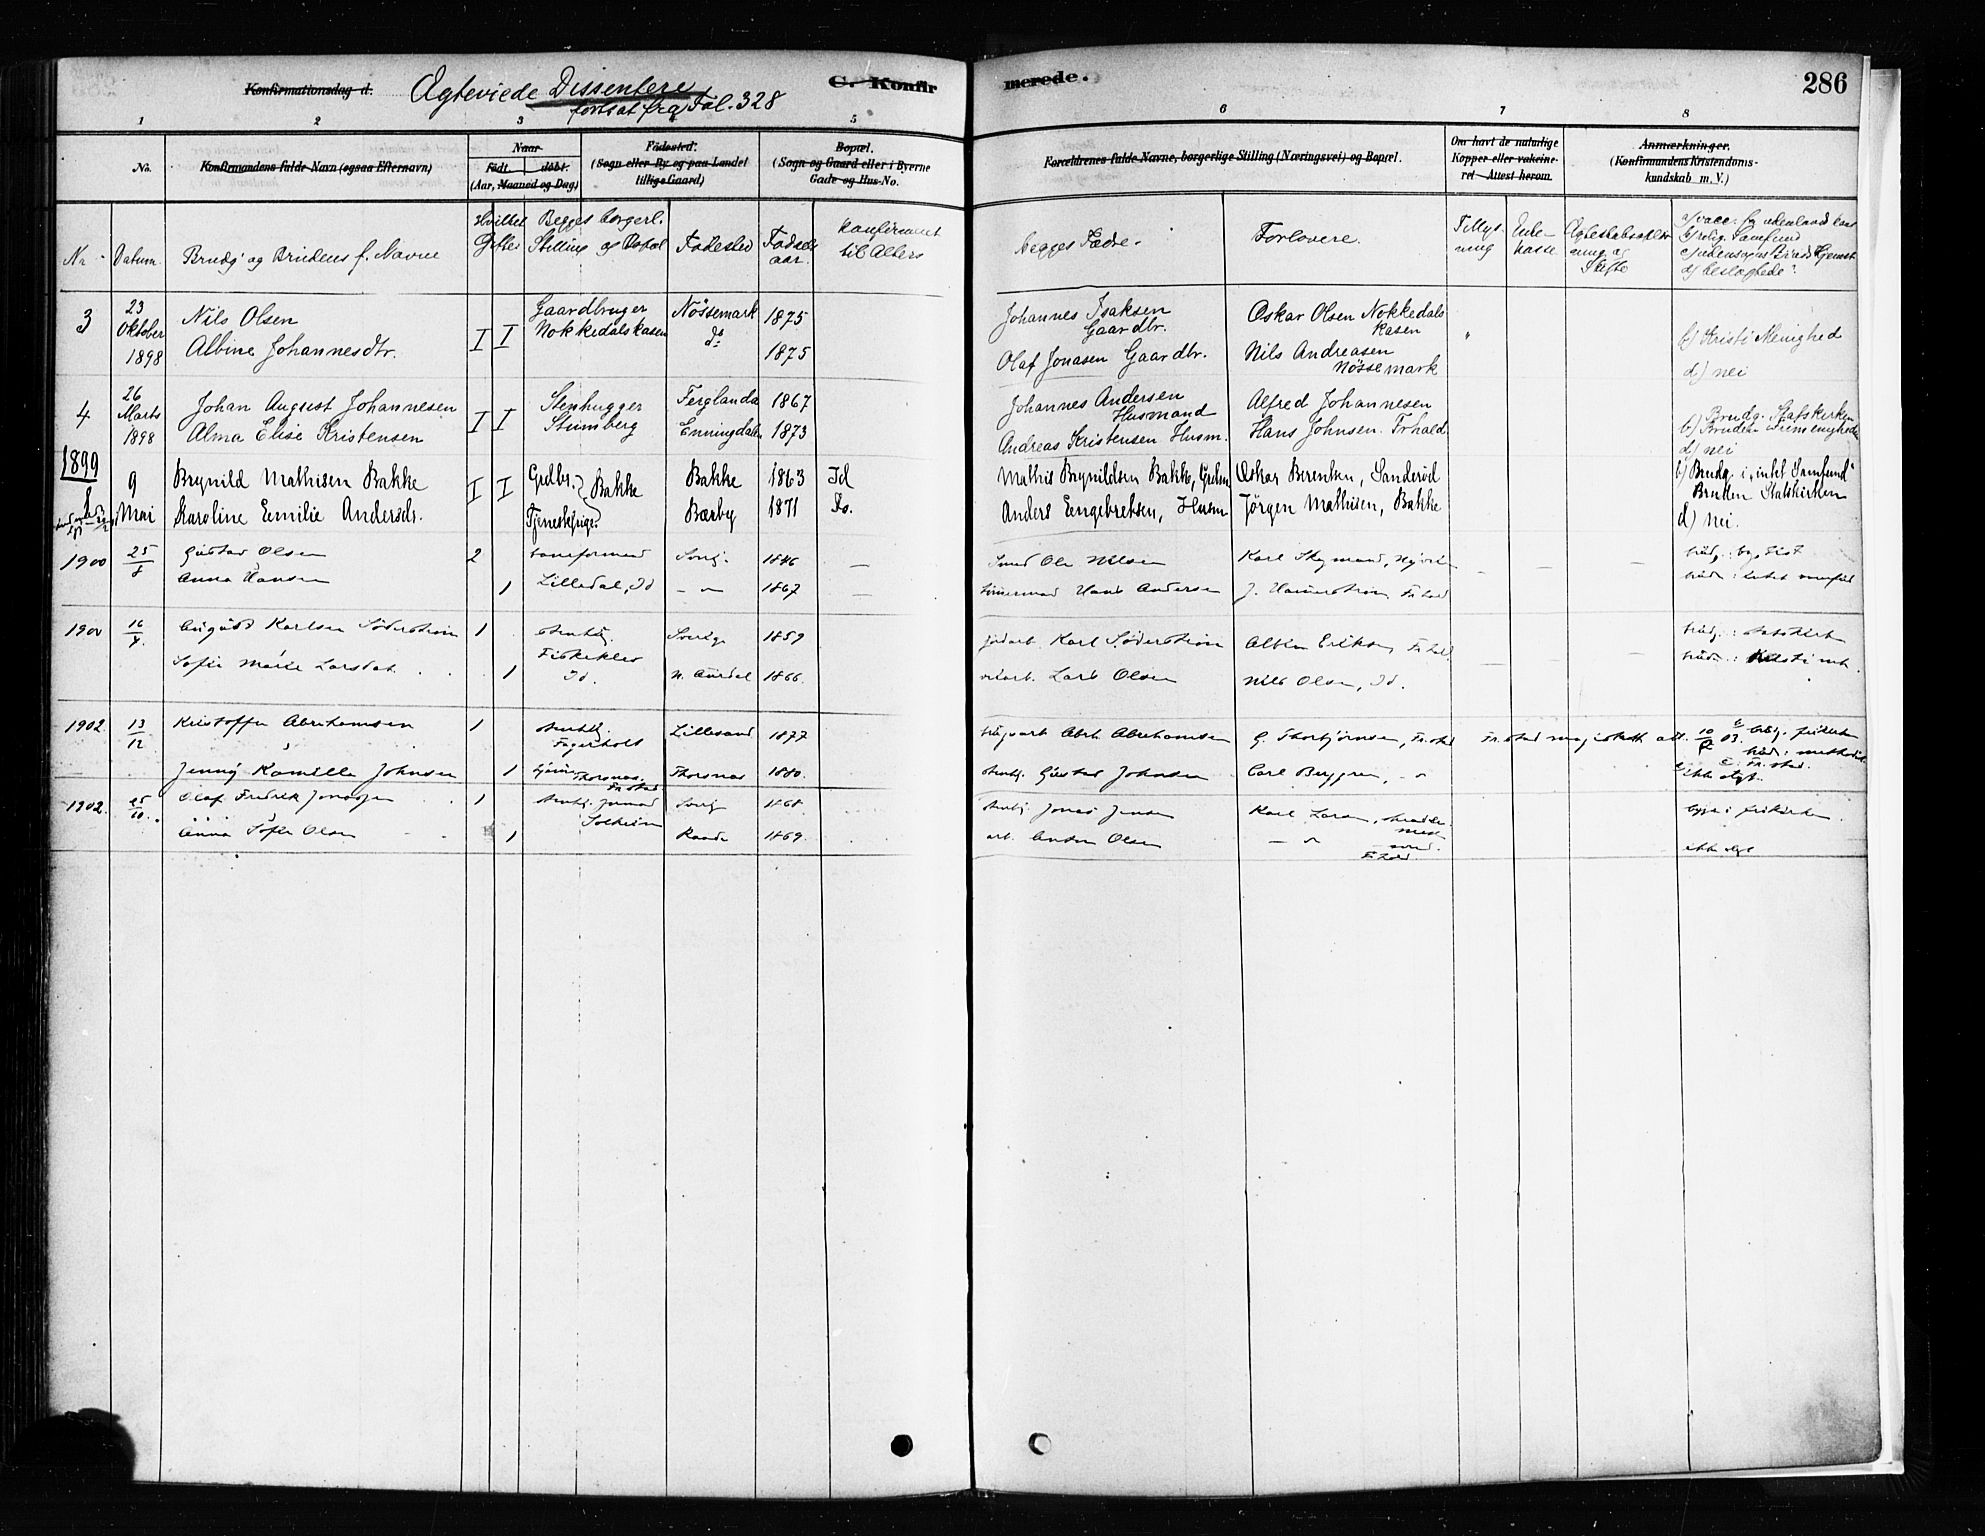 Konfirmationsdag d.
Ægteviede Dissentere
fortsat fra Fol. 328
C. Konfirmerede.
286
1 2 3 4 5 6 7 8
No.
Konfirmandens fulde Navn (ogsaa Efternavn)
Naar
Født. døbt.
(Aar, Maaned og Dag)
Fødested.
(Sogn eller By og paa Landet
tillige Gaard)
Bopæl.
(Sogn og Gaard eller i Byerne
Gade og Hus-No.
Forældrenes fulde Navne, borgerlige Stilling (Næringsvei) og Bopæl.
Om havt de naturlige
Kopper eller vakcine-
ret Attest herom.
Anmærkninger.
(Konfirmandens Kristendoms-
kundskab m. V.)
Nr. Datum. Brudg. og Brudens f. Navne
Hvilket
Gifte
Begges borgerl.
Stilling og Bopæl
Fødested
Fødsels
aar.
Konfirmeret
til Alters
begges Fædre.
Forlovere.
Tillys-
ning
b) relig. Samfund
d) beslægtede?
3
23
Oktober
1898
Nils Olsen
Albine Johannesdtr.
I I
Gaardbruger
Nokkedalskasen
Nössemark
do
1875
1875
Johannes Isaksen
Gaardbr.
Olaf Jonasen Gaardbr.
Oskar Olsen Nokkedals
kasen
Nils Andreasen
Nössemark
b) Kristi Menighed
d) nei
4
26
Marts
1898
Johan August Johannesen
Alma Elise Kristensen
I I
Stenhugger
Stumberg
Ferglanda
Enningdalen
1867
1873
Johannes Andersen
Husmand
Andreas Kristensen Husm.
Alfred Johannesen
Hans Johnsen. Frhald
b) Brudg. Statskirken
Bruden Frimenigheden
d) nei
1899
9
Mai
Brynild Mathisen Bakke
Karoline Emilie Andersdr.
I I
Grdbr.
Tjenestepige
Bakke
Bakke
Bærby
1863
1871
Id
Do.
Mathis Brynildsen Bakke, Grdm
Anders Engebretsen, Husm
Oskar Berentsen, Sanderød
Jörgen Mathisen, Bakke
b) Brudg. i "intet Samfund"
Bruden Statskirken
d) Nei.
1900
25/8
Gustav Olsen
Anna Hansen
2
1
Lilledal, Id
Sverig.
1846
1867
Smed Ole Nilsen
tömmermand Hans Andersen
Karl
Fr.hald
1900
16/4
August Karlsen Söderström
Sofie Marie Larsdat.
1
1
Id.
Sverige
N. Aurdal
1859
1866.
jordarb. Karl Söderström
Lars Olsen
Albin Eriksen, Fr.hald.
Nils Olsen, Id.
1902.
13/12
Kristoffer Abrahamsen
Jenny Kamilla Johnsen
1
1
stenhug.
Fagerholt
Thorsnæs.
Fr.stad
Lillesand
Thorsnæs
1877
1880.
Abrh. Abrahamsen
stenhg. Gustav Johnsen
G. Thorbjörnsen, Fr.stad
Carl Berggren, - " -
Fr.stad magistrats att.
brudg. frikirken
brud: methodist.
ikke slgt.
1902.
25/10.
Olaf Fredrik Jonassen
Anna Sofie Olsen
1
1
Solheim
Sverig
Raade
1868.
1869.
stenhg. Jonas Jensen
arb. Anton Olsen
Karl Larsen,
- " -
Fr.hald.
begge i frikirken.
ikke slgt